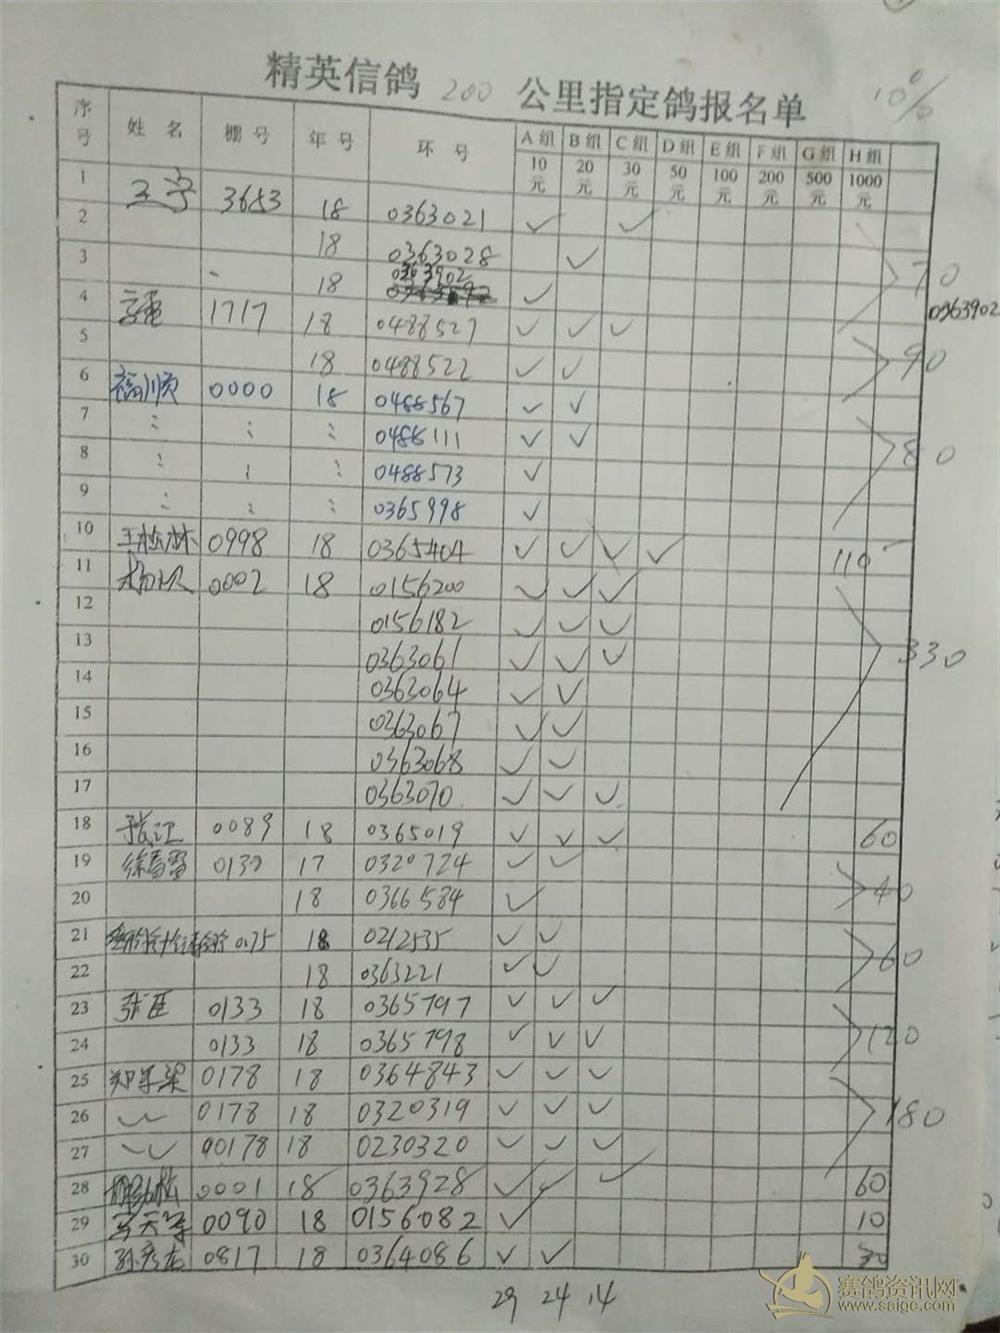 精英信鸽 200 公里指定鸽报名单 10%
序号 姓名 棚号 年号 环号 A组 10元 B组 20元 C组 30元 D组 50元 E组 100元 F组 200元 G组 500元 H组 1000元
1 王宇 3653 18 0363021 ✓ ✓
2 18 0363028 ✓ 70
3 18 0363902 ✓ 0363902
4 1717 18 0488527 ✓ ✓ ✓
5 18 0488522 ✓ ✓ 90
6 福顺 0000 18 0488567 ✓ ✓
7 0488111 ✓ ✓ 80
8 0488573 ✓
9 0365998 ✓
10 王松林 0998 18 0365404 ✓ ✓ ✓ ✓ 110
11 0002 18 0156200 ✓ ✓ ✓
12 0156182 ✓ ✓ ✓
13 0363061 ✓ ✓ ✓ 330
14 0363064 ✓ ✓
15 0363067 ✓ ✓
16 0363068 ✓ ✓
17 0363070 ✓ ✓ ✓
18 张江 0089 18 0365019 ✓ ✓ ✓ 60
19 17 0320724 ✓ ✓
20 18 0366584 ✓ 40
21 18 0212535 ✓ ✓
22 18 0363221 ✓ ✓ 60
23 张臣 0133 18 0365797 ✓ ✓ ✓
24 0133 18 0365798 ✓ ✓ ✓ 120
25 0178 18 0364843 ✓ ✓ ✓
26 0178 18 0320319 ✓ ✓ ✓ 180
27 00178 18 0230320 ✓ ✓ ✓
28 0001 18 0363928 ✓ ✓ ✓ 60
29 0090 18 0156082 ✓ 10
30 0817 18 0364086 ✓ ✓ 30
29 24 14
赛鸽资讯网
www.saigc.com